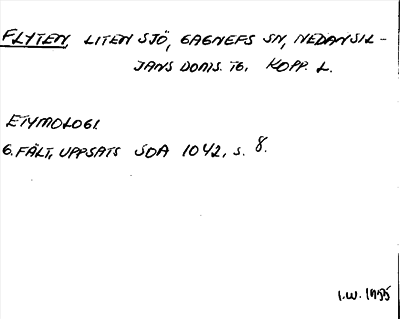 FLYTEN, LITEN SJÖ, GAGNEFS SN, NEDANSIL-
JANS DOMS. TG. KOPP. L.
ETYMOLOGI.
G. FÄLT, UPPSATS SOA 1042, S. 8.
I.W. 1955